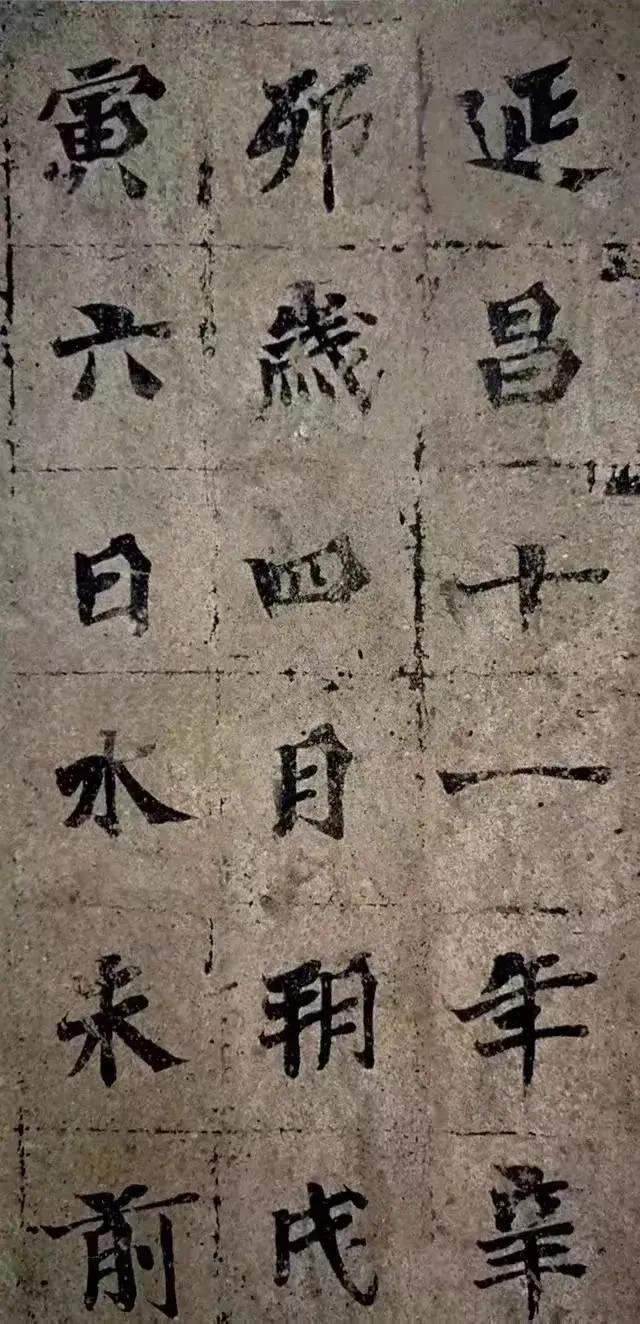 延昌十一年辛
卯歲四月朔戊
寅六日水未前